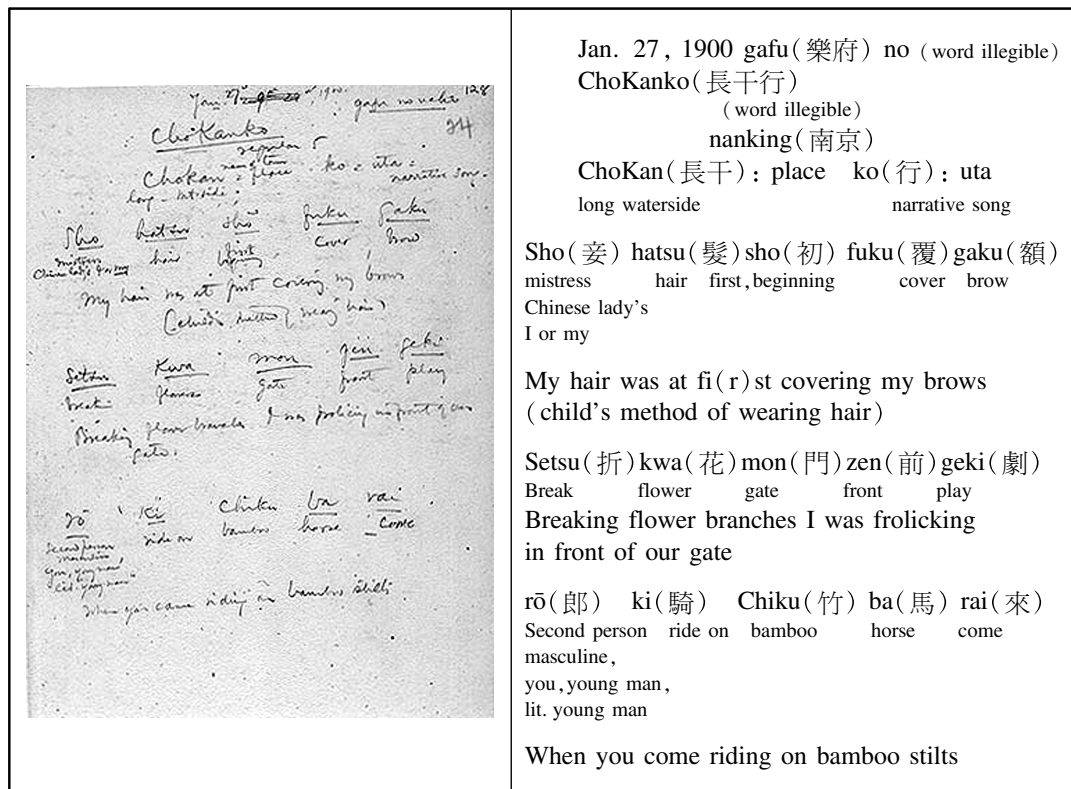 Jan. 27 1900. gafu no 128
24
ChoKanko
regular 5
name of town
Chokan = place ko = uta =
long - waterside narrative song.
Sho hatsu sho fuku gaku
mistress hair first cover brow
Chinese lady's I or my beginning
My hair was at first covering my brows
(child's method of wearing hair)
Setsu Kwa mon zen geki
Break flowers gate front play
Breaking flower branches I was frolicking in front of our
gate.
rō ki chiku ba rai
Second person ride on bamboo horse come
masculine
you, young man,
lit. young man
When you came riding on bamboo stilts
Jan. 27, 1900 gafu(樂府) no (word illegible)
ChoKanko(長干行)
(word illegible)
nanking(南京)
ChoKan(長干): place ko(行): uta
long waterside narrative song
Sho(妾) hatsu(髮) sho(初) fuku(覆) gaku(額)
mistress hair first, beginning cover brow
Chinese lady's
I or my
My hair was at fi(r)st covering my brows
(child's method of wearing hair)
Setsu(折) kwa(花) mon(門) zen(前) geki(劇)
Break flower gate front play
Breaking flower branches I was frolicking
in front of our gate
rō(郎) ki(騎) Chiku(竹) ba(馬) rai(來)
Second person ride on bamboo horse come
masculine,
you, young man,
lit. young man
When you come riding on bamboo stilts